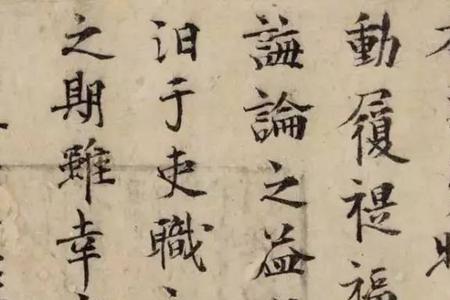 動履禔福
誨論之益
汩于吏職
之期雖幸